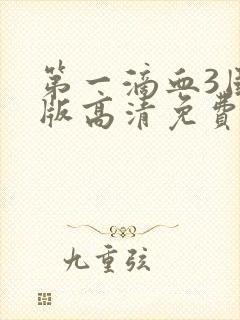 第一滴血3
版高清免费
九重弦